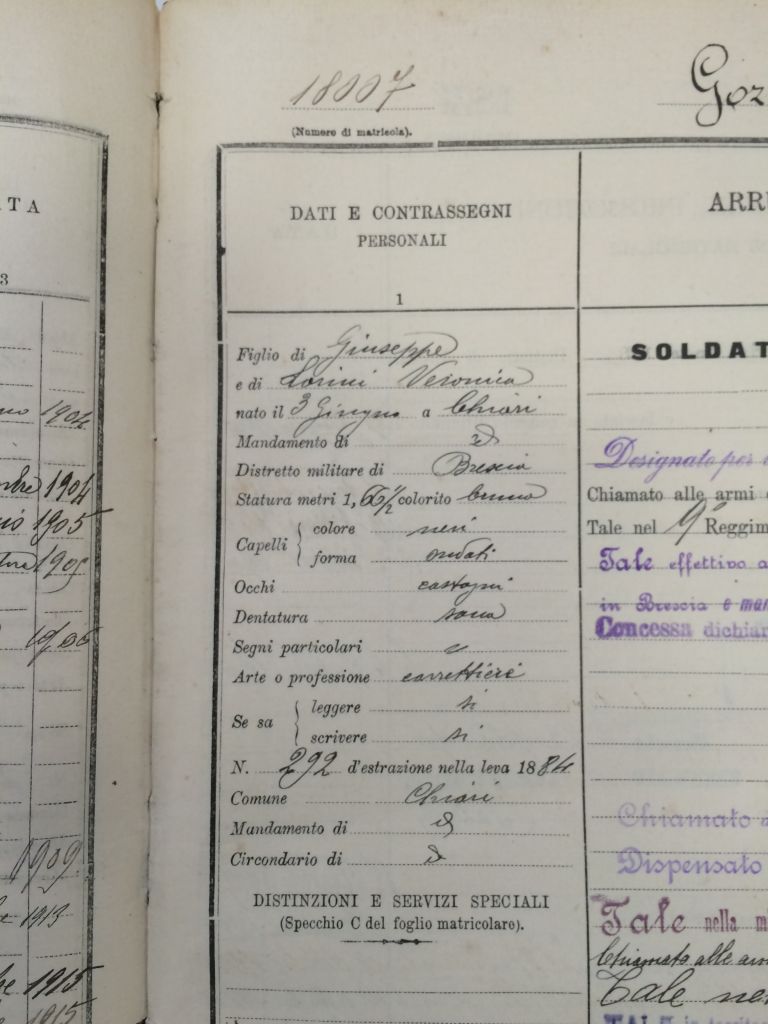 18007
(Numero di matricola).
Goz
DATI E CONTRASSEGNI
PERSONALI
1
Figlio di Giuseppe
e di Lorini Veronica
nato il 3 Giugno a Chiari
Mandamento di
Distretto militare di Brescia
Statura metri 1, 61½ colorito bruno
Capelli { colore neri
forma ondati
Occhi castagni
Dentatura sana
Segni particolari
Arte o professione carrettiere
Se sa { leggere si
scrivere si
N. 292 d'estrazione nella leva 1884
Comune Chiari
Mandamento di
Circondario di
DISTINZIONI E SERVIZI SPECIALI
(Specchio C del foglio matricolare).
ARRU
SOLDAT
Designato per
Chiamato alle armi
Tale nel 9° Reggim
Tale effettivo a
in Brescia e man
Concessa dichiar
Chiamato
Dispensato
Tale nella m
Chiamato alle arm
Tale ne
TALE in territo
ATA
3
1904
1904
1905
1905
1906
1909
1913
1915
1915